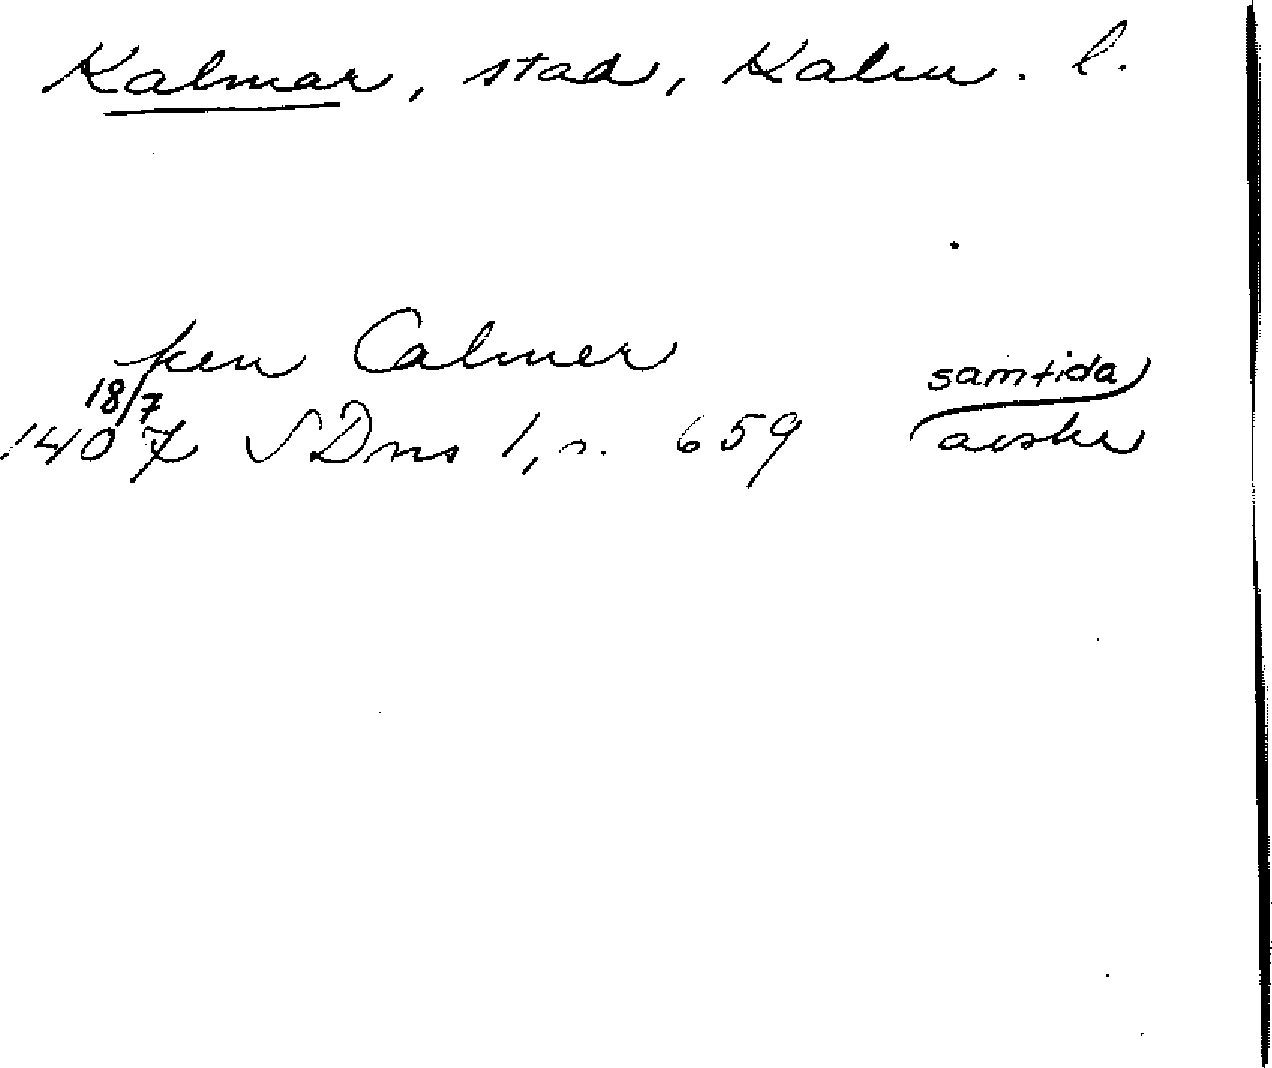 Kalmar, stad, Kalm. l.
pen Calmer
samtida
18/7
1407 SDns 1, n. 659 avskr